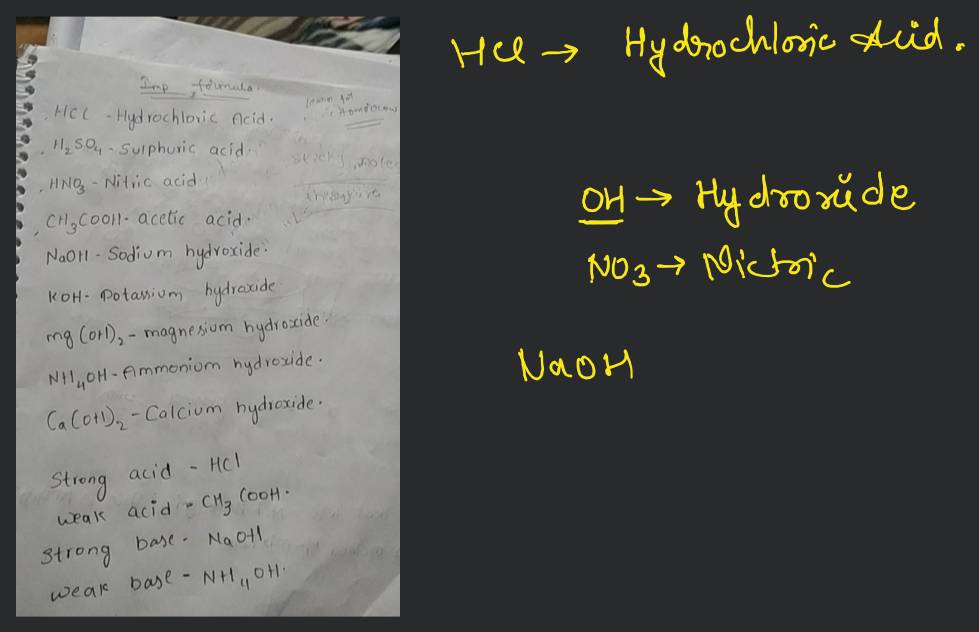 Imp formula.
learn for
tomorrow
. HCl - Hydrochloric Acid.
. H₂SO₄ - Sulphuric acid.
. HNO₃ - Nitric acid.
CH₃COOH - acetic acid.
NaOH - Sodium hydroxide.
KOH - Potassium hydroxide
mg(OH)₂ - magnesium hydroxide.
NH₄OH - Ammonium hydroxide.
Ca(OH)₂ - Calcium hydroxide.
Strong acid - HCl
weak acid - CH₃COOH.
Strong base - NaOH
weak base - NH₄OH.
HCl → Hydrochloric Acid.
OH → Hydroxide
NO₃ → Nictric
NaOH